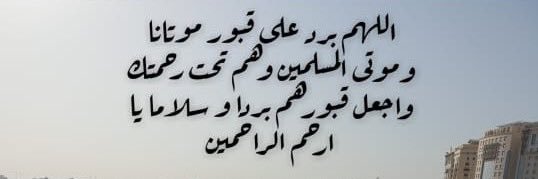 اللهم برد على قبور موتانا
وموتى المسلمين وهم تحت رحمتك
واجعل قبورهم بردا و سلاما يا
ارحم الراحمين